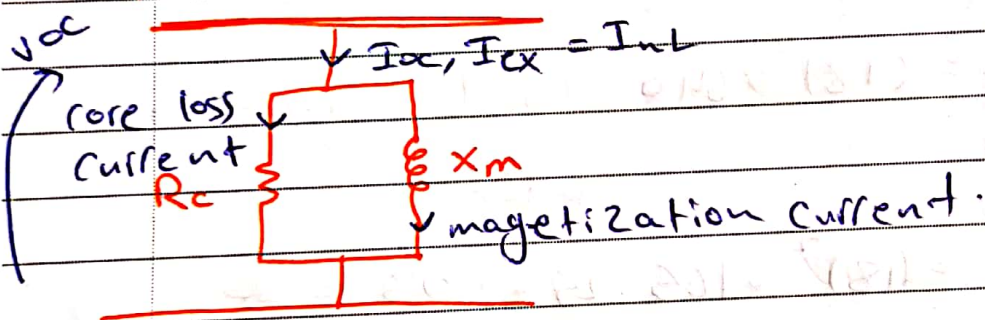 Voc
Ioc, Iex = InL
core loss
current
Rc
Xm
magetization current.